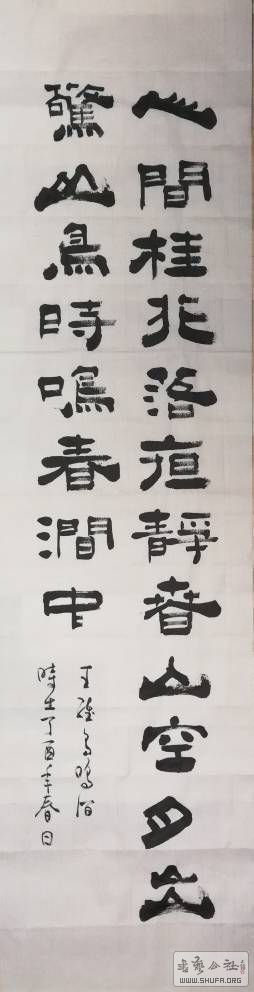 心間桂花落夜靜春山空月出
驚山鳥時鳴春澗中
王維鳥鳴澗
時在丁酉年春日
书艺公社
WWW.SHUFA.ORG